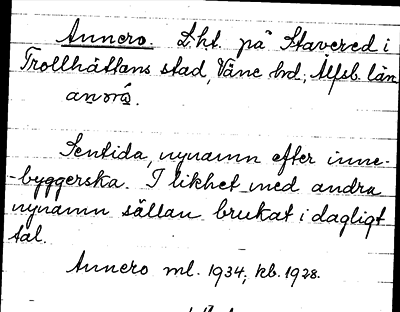 Annero. L.ht. på Stavered i
Trollhättans stad, Väne hd, Älfsb. län
Sentida, nynamn efter inne-
-byggerska. I likhet med andra
nynamn sällan brukat i dagligt
tal.
Annero ml. 1934; kb. 1928.